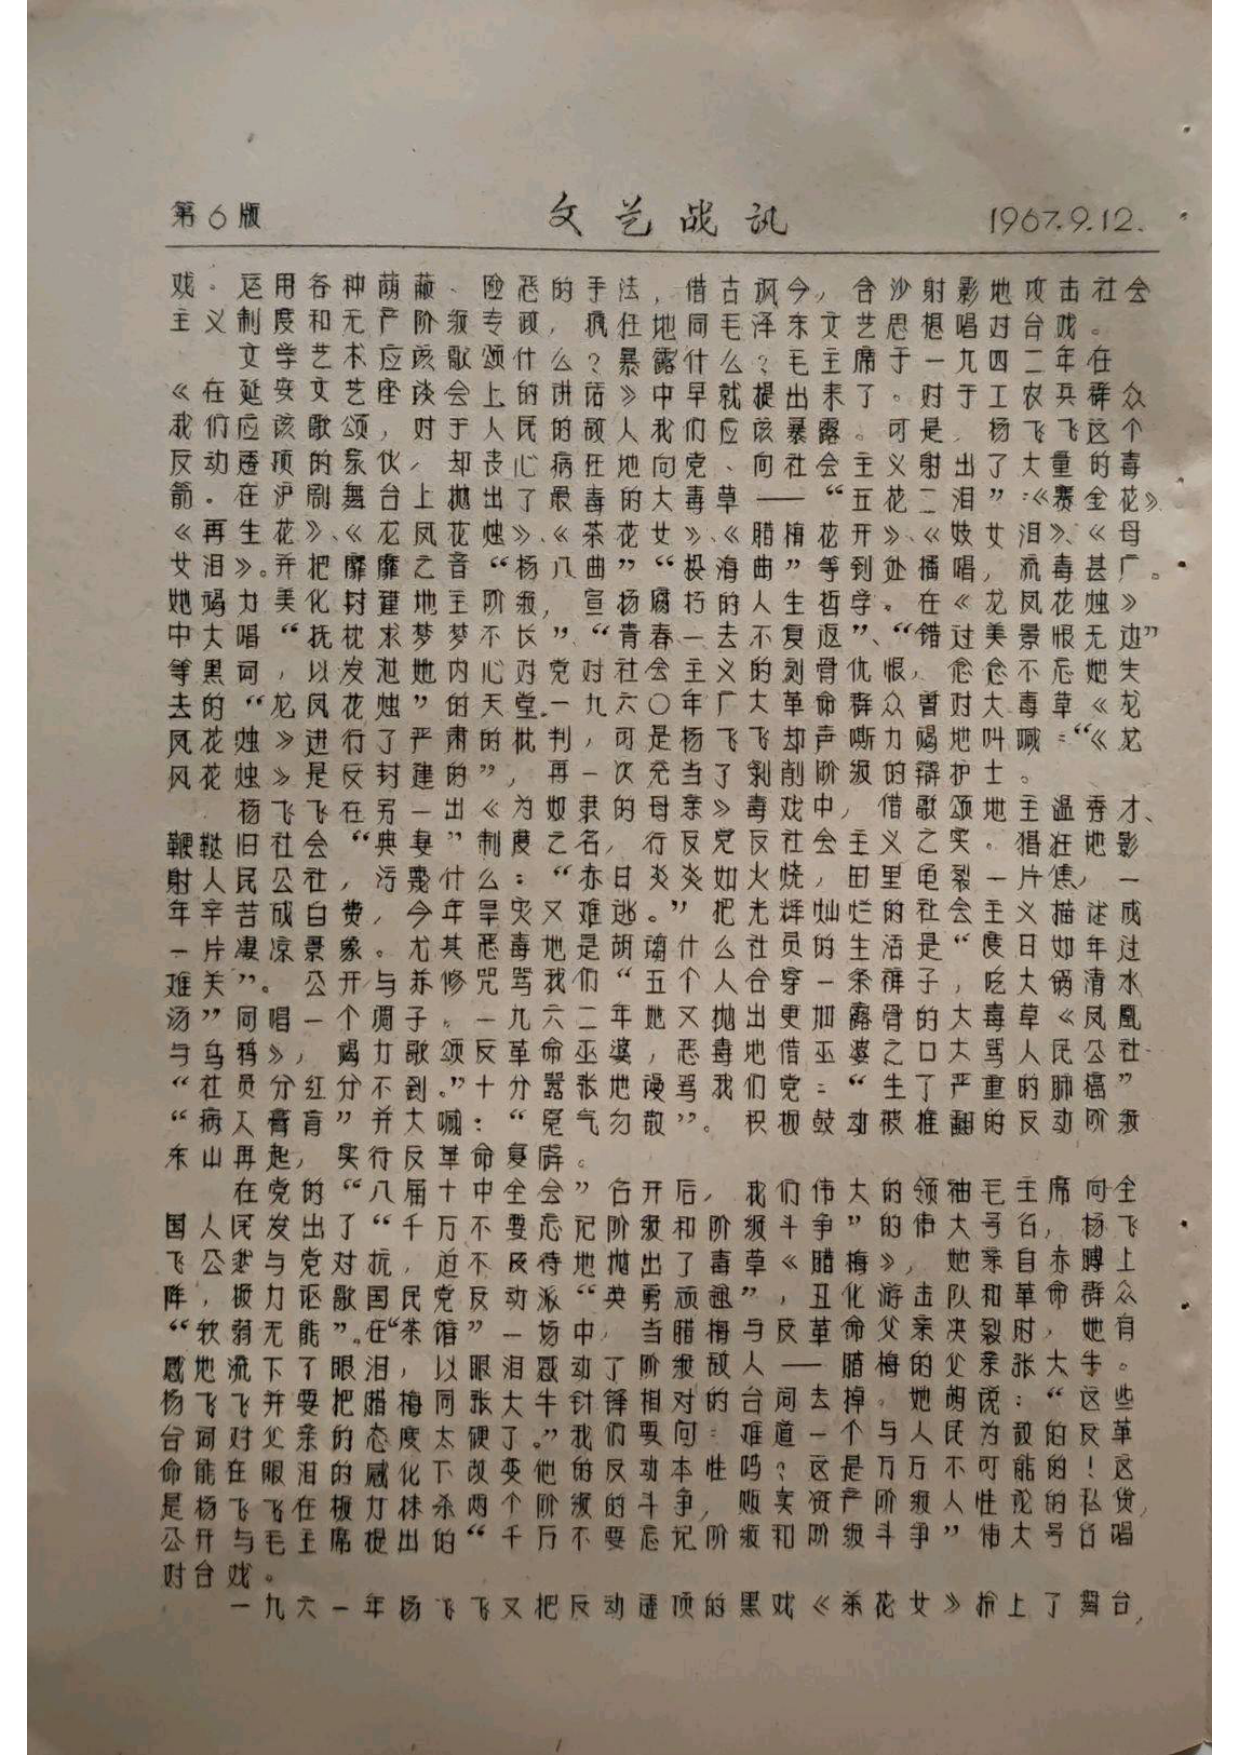 第6版 文艺战讯 1967.9.12.
戏。运用各种荫蔽、险恶的手法，借古讽今，含沙射影地攻击社会
主义制度和无产阶级专政，疯狂地同毛泽东文艺思想唱对台戏。
文学艺术应该歌颂什么？暴露什么？毛主席于一九四二年在
《在延安文艺座谈会上的讲话》中早就提出来了。对于工农兵群众
我们应该歌颂，对于人民的敌人我们应该暴露。可是，杨飞飞这个
反动透顶的家伙，却丧心病狂地向党、向社会主义射出了大量的毒
箭。在沪剧舞台上抛出了最毒的大毒草——“五花二泪”：《赛金花》
《再生花》、《龙凤花烛》、《茶花女》、《腊梅花开》、《妓女泪》、《母
女泪》。并把靡靡之音“杨八曲”“投海曲”等到处播唱，流毒甚广。
她竭力美化封建地主阶级，宣杨腐朽的人生哲学。在《龙凤花烛》
中大唱“抚枕求梦梦不长”、“青春一去不复返”、“错过美景恨无边”
等黑词，以发泄她内心对党对社会主义的刻骨仇恨，念念不忘她失
去的“龙凤花烛”的天堂。一九六〇年广大革命群众曾对大毒草《龙
凤花烛》进行了严肃的批判，可是杨飞飞却声嘶力竭地叫喊：“《龙
风花烛》是反封建的”，再一次充当了剥削阶级的辩护士。
杨飞飞在另一出《为奴隶的母亲》毒戏中，借歌颂地主温秀才、
鞭挞旧社会“典妻”制度之名，行反党反社会主义之实。猖狂地影
射人民公社，污蔑什么：“赤日炎炎如火烧，田里龟裂一片焦，一
年辛苦成白费，今年旱灾又难逃。”把光辉灿烂的社会主义描述成
一片凄凉景象。尤其恶毒地是胡诌什么社员的生活是“度日如年过
难关”。公开与苏修咒骂我们“五个人合穿一条裤子，吃大锅清水
汤”同唱一个调子。一九六二年她又抛出更加露骨的大毒草《凤凰
与乌鸦》，竭力歌颂反革命巫婆，恶毒地借巫婆之口大骂人民公社
“社员分红分不到。”十分嚣张地谩骂我们党：“生了严重的肺癌”
“病入膏肓”并大喊：“冤气勿散”。积极鼓动被推翻的反动阶级
东山再起，实行反革命复辟。
在党的“八届十中全会”召开后，我们伟大的领袖毛主席向全
国人民发出了“千万不要忘记阶级和阶级斗争”的伟大号召，杨飞
飞公然与党对抗，迫不及待地抛出了毒草《腊梅》，她亲自赤膊上
阵，极力讴歌国民党反动派“英勇顽强”，丑化游击队和革命群众
“软弱无能”。在“茶馆”一场中，当腊梅与反革命父亲决裂时，她有
感地流下了眼泪，以眼泪感动了阶级敌人——腊梅的父亲张大牛。
杨飞飞并要把腊梅同张大牛针锋相对的台词去掉。她胡说：“这些
台词对父亲的态度太硬了。”我们要问：难道一个与人民为敌的反革
命能在眼泪的感化下改变他的反动本性吗？这是万万不可能的！这
是杨飞飞在极力抹杀两个阶级的斗争，贩卖资产阶级人性论的私货，
公开与毛主席提出的“千万不要忘记阶级和阶级斗争”伟大号召唱
对台戏。
一九六一年杨飞飞又把反动透顶的黑戏《茶花女》抬上了舞台，